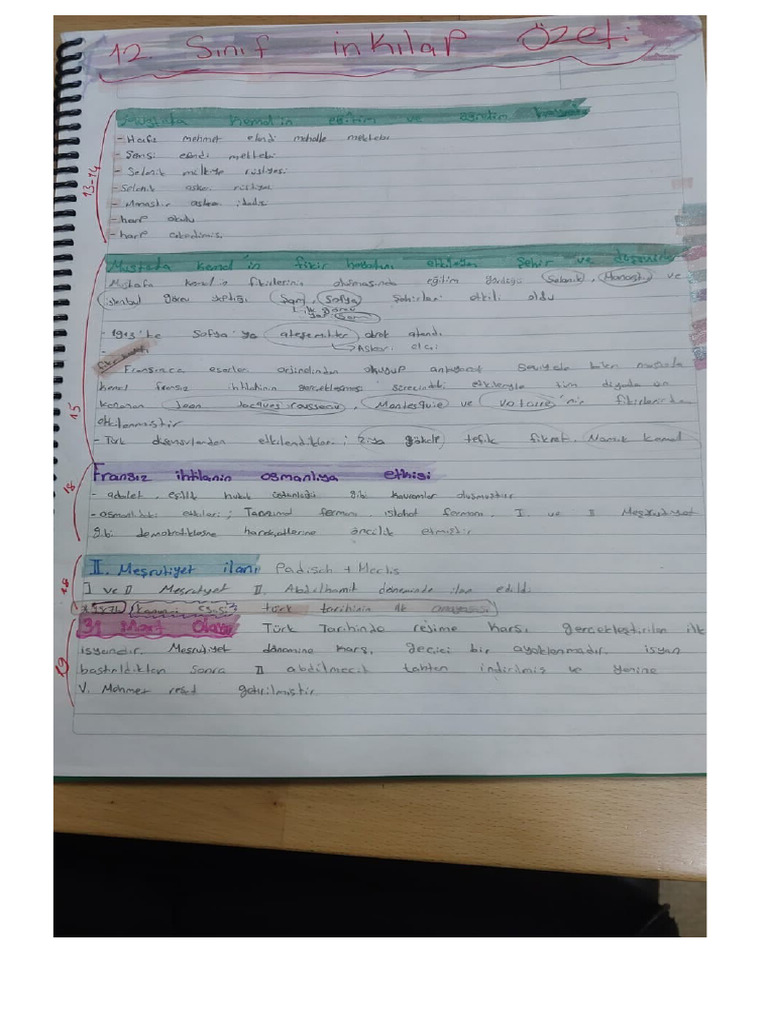 12. Sınıf inkılap Özeti
Mustafa Kemal'in eğitim ve ögretim hayatı
13-14
- Hafız mehmet efendi mahalle mektebi
- Şemsi efendi mektebi
- Selanik mülkiye rüştiyesi
- Selanik askeri rüştiye
- Manastır askeri idadi
- harp okulu
- harp akademisi
15
Mustafa Kemal'in fikir hayatını etkileyen şehir ve düşünürler
Mustafa Kemal'in fikirlerinin oluşmasında eğitim gördüğü Selanik, Manastır ve
istanbul görev yaptığı Şam, Sofya şehirleri etkili oldu
ilk görev
yeri Şam
- 1913'te Sofya'ya ateşemiliter olarak atandı.
Askeri elçi
fikir hayatı
- Fransızca eserler orjinalinden okuyup anlayacak seviyede bilen mustafa
kemal fransız ihtilalinin gerçekleşmesi sürecindeki etkileriyle tüm dünyada ün
kazanan Jean Jacques rousseau, Montesquie ve Voltaire'nin fikirlerinden
etkilenmiştir
- Türk düşünürlerden etkilendikleri; Ziya gökalp tefik fikret, Namık kemal
18
Fransız ihtilanin osmanlıya etkisi
- adalet, eşitlik hukuk üstünlüğü gibi kavramlar oluşmuştur
- osmanlıdaki etkileri; Tanzimat fermanı, ıslahat fermanı, I. ve II Meşrutiyet
gibi demokratikleşme hareketlerine öncülük etmiştir
18
II. Meşrutiyet ilanı Padişah + Meclis
I ve II Meşrutiyet II. Abdülhamit döneminde ilan edildi
* 1876 Kanuni esasi türk tarihinin ilk anayasası
19
31 Mart Olayı Türk Tarihinde rejime karşı gerçekleştirilen ilk
isyandır. Meşrutiyet dönemine karşı, gerici bir ayaklanmadır. isyan
bastırıldıktan sonra II abdülmecit tahtan indirilmiş ve yerine
V. Mehmet reşad getirilmiştir